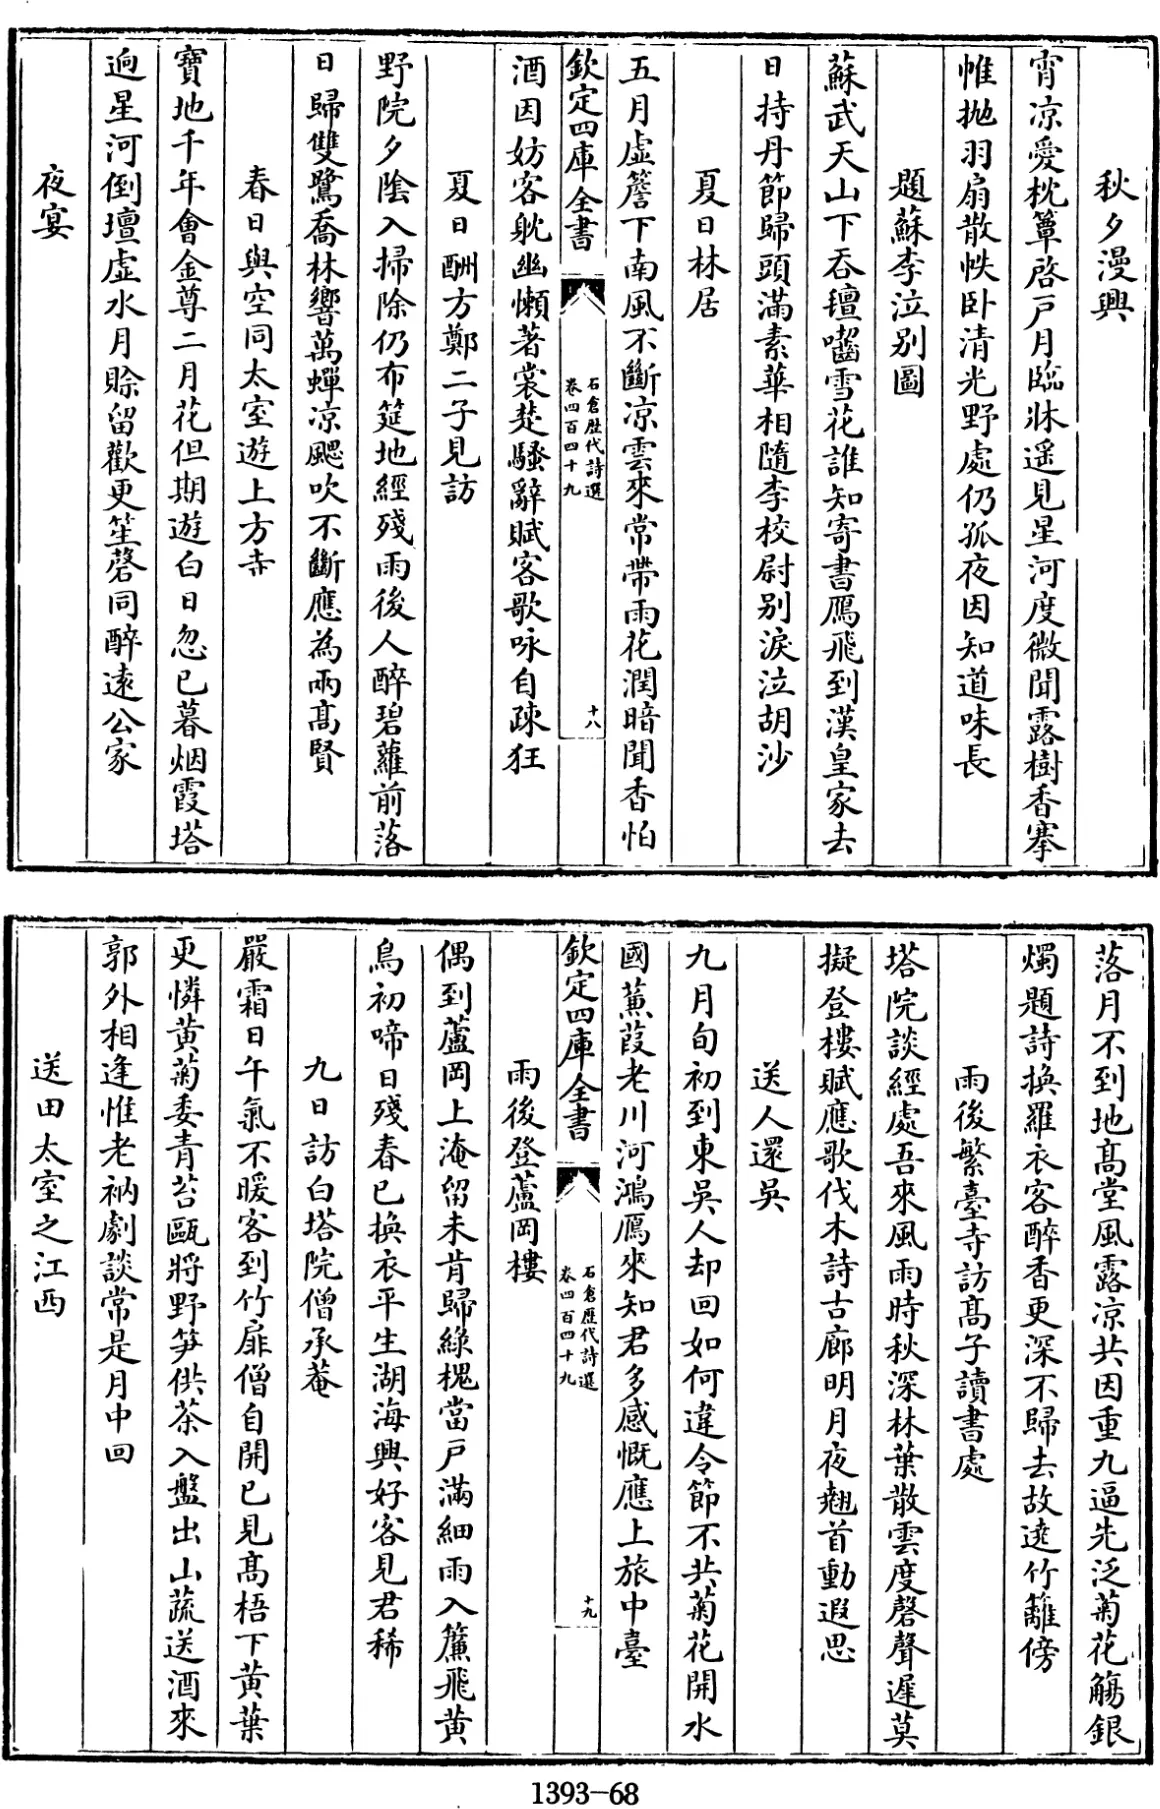 秋夕漫興
宵凉愛枕簟啓戸月臨牀遥見星河度微聞露樹香搴
帷抛羽扇散帙卧清光野處仍孤夜因知道味長
題蘇李泣别圖
蘇武天山下吞氊囓雪花誰知寄書鴈飛到漢皇家去
日持丹節歸頭滿素華相隨李校尉别淚泣胡沙
夏日林居
五月虚簷下南風不斷凉雲來常帶雨花潤暗聞香怕
欽定四庫全書
石倉歴代詩選
卷四百四十九
十八
酒因妨客躭幽懶著裳楚騷辭賦客歌咏自疎狂
夏日酬方鄭二子見訪
野院夕陰入掃除仍布筵地經殘雨後人醉碧蘿前落
日歸雙鷺喬林響萬蟬凉颸吹不斷應為兩髙賢
春日與空同太室遊上方寺
寶地千年會金尊二月花但期遊白日忽已暮烟霞塔
逈星河倒壇虚水月賒留歡更笙磬同醉逺公家
夜宴
落月不到地髙堂風露凉共因重九逼先泛菊花觴銀
燭題詩换羅衣客醉香更深不歸去故遶竹籬傍
雨後繁臺寺訪髙子讀書處
塔院談經處吾來風雨時秋深林葉散雲度磬聲遲莫
擬登樓賦應歌伐木詩古廊明月夜翹首動遐思
送人還吳
九月旬初到東吳人却回如何違令節不共菊花開水
國蒹葭老川河鴻鴈來知君多感慨應上旅中臺
欽定四庫全書
石倉歴代詩選
卷四百四十九
十九
雨後登蘆岡樓
偶到蘆岡上淹留未肯歸綠槐當戸滿細雨入簾飛黄
鳥初啼日殘春已换衣平生湖海興好客見君稀
九日訪白塔院僧承菴
嚴霜日午氣不暖客到竹扉僧自開已見髙梧下黄葉
更憐黄菊委青苔甌將野笋供茶入盤出山蔬送酒來
郭外相逢惟老衲劇談常是月中回
送田太室之江西
1393-68